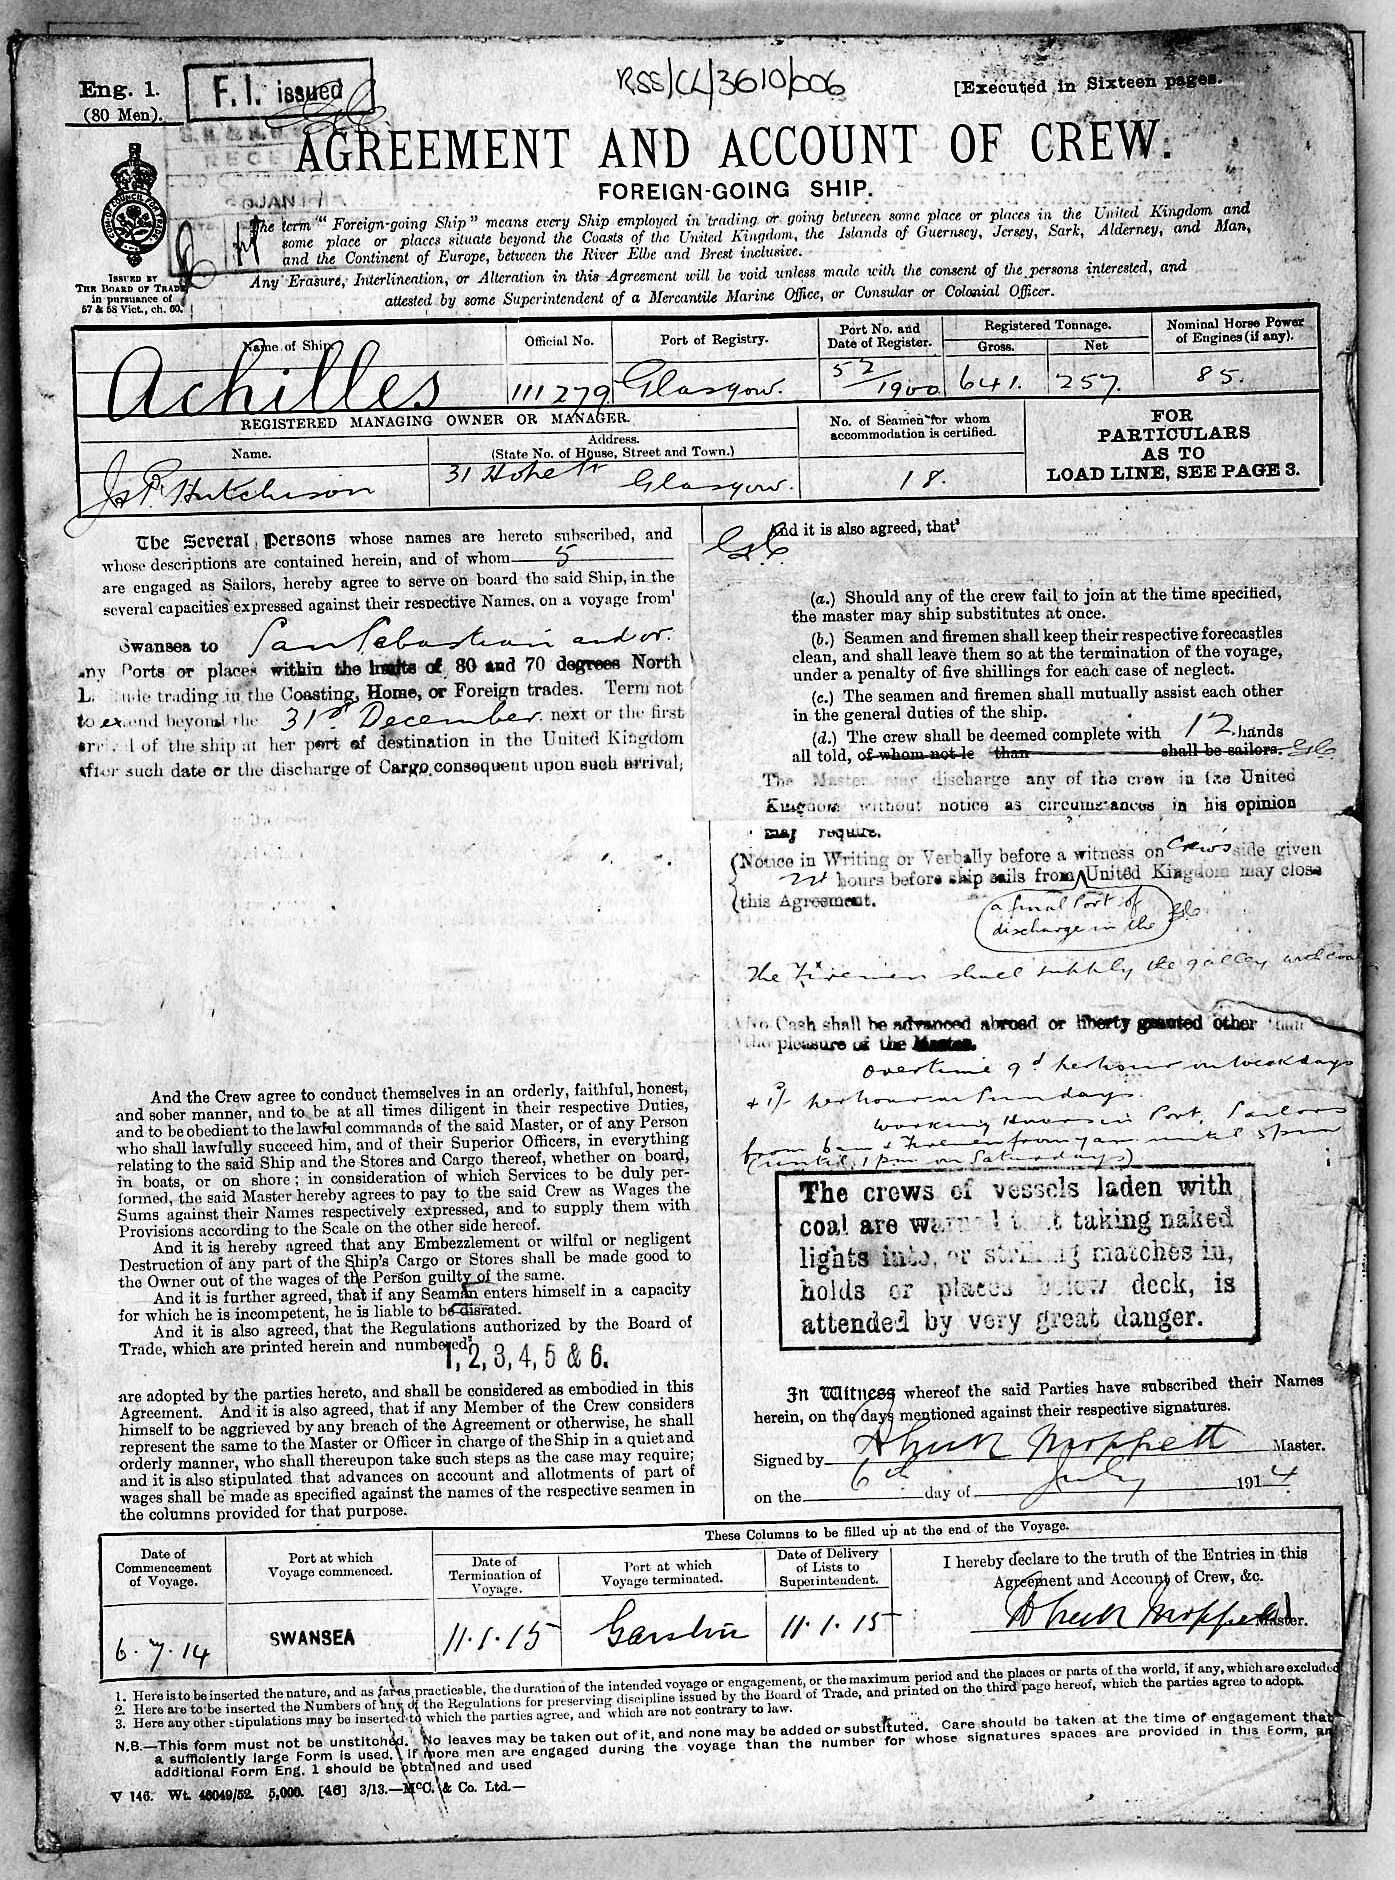 Eng. 1.
(80 Men).
F. I. issued
RSS/CL/3610/006
[Executed in Sixteen pages.
AGREEMENT AND ACCOUNT OF CREW.
FOREIGN-GOING SHIP.
ISSUED BY
THE BOARD OF TRADE
in pursuance of
57 & 58 Vict., ch. 60.
The term "Foreign-going Ship" means every Ship employed in trading or going between some place or places in the United Kingdom and
some place or places situate beyond the Coasts of the United Kingdom, the Islands of Guernsey, Jersey, Sark, Alderney, and Man,
and the Continent of Europe, between the River Elbe and Brest inclusive.
Any Erasure, Interlineation, or Alteration in this Agreement will be void unless made with the consent of the persons interested, and
attested by some Superintendent of a Mercantile Marine Office, or Consular or Colonial Officer.
Name of Ship.
Official No.
Port of Registry.
Port No. and
Date of Register.
Registered Tonnage.
Gross.
Net
Nominal Horse Power
of Engines (if any).
Achilles
111279
Glasgow.
52/1900
641.
257.
85.
REGISTERED MANAGING OWNER OR MANAGER.
Name.
Address.
(State No. of House, Street and Town.)
No. of Seamen for whom
accommodation is certified.
FOR
PARTICULARS
AS TO
LOAD LINE, SEE PAGE 3.
Js P. Hutchison
31 Hope St
Glasgow.
18.
The Several Persons whose names are hereto subscribed, and
whose descriptions are contained herein, and of whom 5
are engaged as Sailors, hereby agree to serve on board the said Ship, in the
several capacities expressed against their respective Names, on a voyage from
Swansea to San Sebastian and/or
any Ports or places within the limits of 80 and 70 degrees North
trading in the Coasting, Home, or Foreign trades. Term not
to extend beyond the 31st December next or the first
arrival of the ship at her port of destination in the United Kingdom
After such date or the discharge of Cargo consequent upon such arrival;
And the Crew agree to conduct themselves in an orderly, faithful, honest,
and sober manner, and to be at all times diligent in their respective Duties,
and to be obedient to the lawful commands of the said Master, or of any Person
who shall lawfully succeed him, and of their Superior Officers, in everything
relating to the said Ship and the Stores and Cargo thereof, whether on board,
in boats, or on shore; in consideration of which Services to be duly per-
formed, the said Master hereby agrees to pay to the said Crew as Wages the
Sums against their Names respectively expressed, and to supply them with
Provisions according to the Scale on the other side hereof.
And it is hereby agreed that any Embezzlement or wilful or negligent
Destruction of any part of the Ship's Cargo or Stores shall be made good to
the Owner out of the wages of the Person guilty of the same.
And it is further agreed, that if any Seaman enters himself in a capacity
for which he is incompetent, he is liable to be disrated.
And it is also agreed, that the Regulations authorized by the Board of
Trade, which are printed herein and numbered
1, 2, 3, 4, 5 & 6.
are adopted by the parties hereto, and shall be considered as embodied in this
Agreement. And it is also agreed, that if any Member of the Crew considers
himself to be aggrieved by any breach of the Agreement or otherwise, he shall
represent the same to the Master or Officer in charge of the Ship in a quiet and
orderly manner, who shall thereupon take such steps as the case may require;
and it is also stipulated that advances on account and allotments of part of
wages shall be made as specified against the names of the respective seamen in
the columns provided for that purpose.
And it is also agreed, that
(a.) Should any of the crew fail to join at the time specified,
the master may ship substitutes at once.
(b.) Seamen and firemen shall keep their respective forecastles
clean, and shall leave them so at the termination of the voyage,
under a penalty of five shillings for each case of neglect.
(c.) The seamen and firemen shall mutually assist each other
in the general duties of the ship.
(d.) The crew shall be deemed complete with 12 hands
all told, of whom not le than shall be sailors.
The Master may discharge any of the crew in the United
Kingdom without notice as circumstances in his opinion
may require.
(Notice in Writing or Verbally before a witness on Crew's side given
hours before ship sails from United Kingdom may close
(this Agreement.
a final Port of
discharge in the
The Firemen shall supply the galley with coal
No Cash shall be advanced abroad or liberty granted other than
the pleasure of the Master.
overtime 9d per hour on weekdays
& 1/- per hour on Sundays.
Working Hours in Port, Sailors
from 6am & Firemen from 7am until 5pm
(until 1pm on Saturdays)
The crews of vessels laden with
coal are warned that taking naked
lights into, or striking matches in,
holds or places below deck, is
attended by very great danger.
In Witness whereof the said Parties have subscribed their Names
herein, on the days mentioned against their respective signatures.
Signed by Moppett Master.
on the 6th day of July 1914
These Columns to be filled up at the end of the Voyage.
Date of
Commencement
of Voyage.
Port at which
Voyage commenced.
Date of
Termination of
Voyage.
Port at which
Voyage terminated.
Date of Delivery
of Lists to
Superintendent.
I hereby declare to the truth of the Entries in this
Agreement and Account of Crew, &c.
6.7.14
SWANSEA
11.1.15
Garston
11.1.15
Moppett Master.
1. Here is to be inserted the nature, and as far as practicable, the duration of the intended voyage or engagement, or the maximum period and the places or parts of the world, if any, which are excluded
2. Here are to be inserted the Numbers of any of the Regulations for preserving discipline issued by the Board of Trade, and printed on the third page hereof, which the parties agree to adopt.
3. Here any other stipulations may be inserted to which the parties agree, and which are not contrary to law.
N.B.—This form must not be unstitched. No leaves may be taken out of it, and none may be added or substituted. Care should be taken at the time of engagement that
a sufficiently large Form is used. If more men are engaged during the voyage than the number for whose signatures spaces are provided in this Form, an
additional Form Eng. 1 should be obtained and used
V 146. Wt. 46049/52. 5,000. [46] 3/13.—McC. & Co. Ltd.—